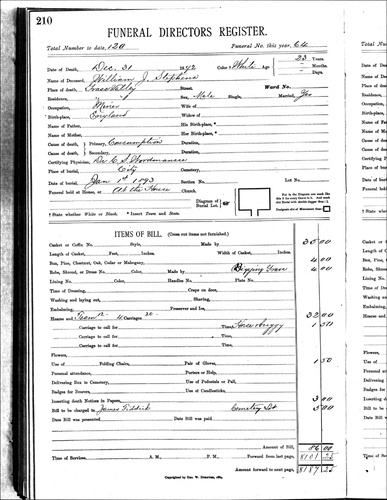 210
FUNERAL DIRECTORS REGISTER.
Total Number to date, 120 Funeral No. this year, 64
Date of Death, Dec. 31 Color † White Age 23 Years.
Months.
Days.
Name of Deceased, William J. Stephens
Place of death, Grass Valley Street. Ward No.
Residence, Sex, Male Single, Married, Yes
Occupation, Miner Wife of
Birth-place, England Widow of
Name of Father, His Birth-place, *
Name of Mother, Her Birth-place, *
Cause of death, Primary, Consumption Duration,
Cause of death, Secondary, Duration,
Certifying Physician, Dr.
Place of burial, City Cemetery.
Date of burial, Jan 1st 1893 Section No. Lot No.
Funeral held at House, or At the House Church.
Diagram of Burial Lot.
† State whether White or Black. * Insert Town and State.
ITEMS OF BILL. (Cross out items not furnished.)
Casket or Coffin No. Style, Made by 35 00
Length of Casket, Feet, Inches. Width of Casket, Inches.
Box, Pine, Chestnut, Oak, Cedar or Mahogany, 4 00
Robe, Shroud, or Dress No. Color, Made by Digging Grave 4 00
Lining No. Color, Handles No. Plate No.
Time of Dressing, Crape on door,
Washing and laying out, Shaving,
Embalming, Preserver and Ice,
Hearse and Team 12- 4 Carriages 20- 32 00
Carriage to call for Time, Horse & buggy 1 50
Carriage to call for Time,
Carriage to call for Time,
Flowers,
Use of Folding Chairs, Pair of Gloves, 1 50
Personal attendance, Porters or Help,
Delivering Box to Cemetery, Use of Pedestals or Pall,
Badges for Bearers, Use of Candlesticks,
Inserting death Notices in Papers, 3 00
Bill to be charged to James Fiddick Cemetery Lot 5 00
Date Bill was presented Date Bill was paid
Amount of Bill, 86 00
Time of Services, A. M., P. M. Forward from last page, 8101 25
Amount forward to next page, 8187 25
Copyrighted by Geo. W.